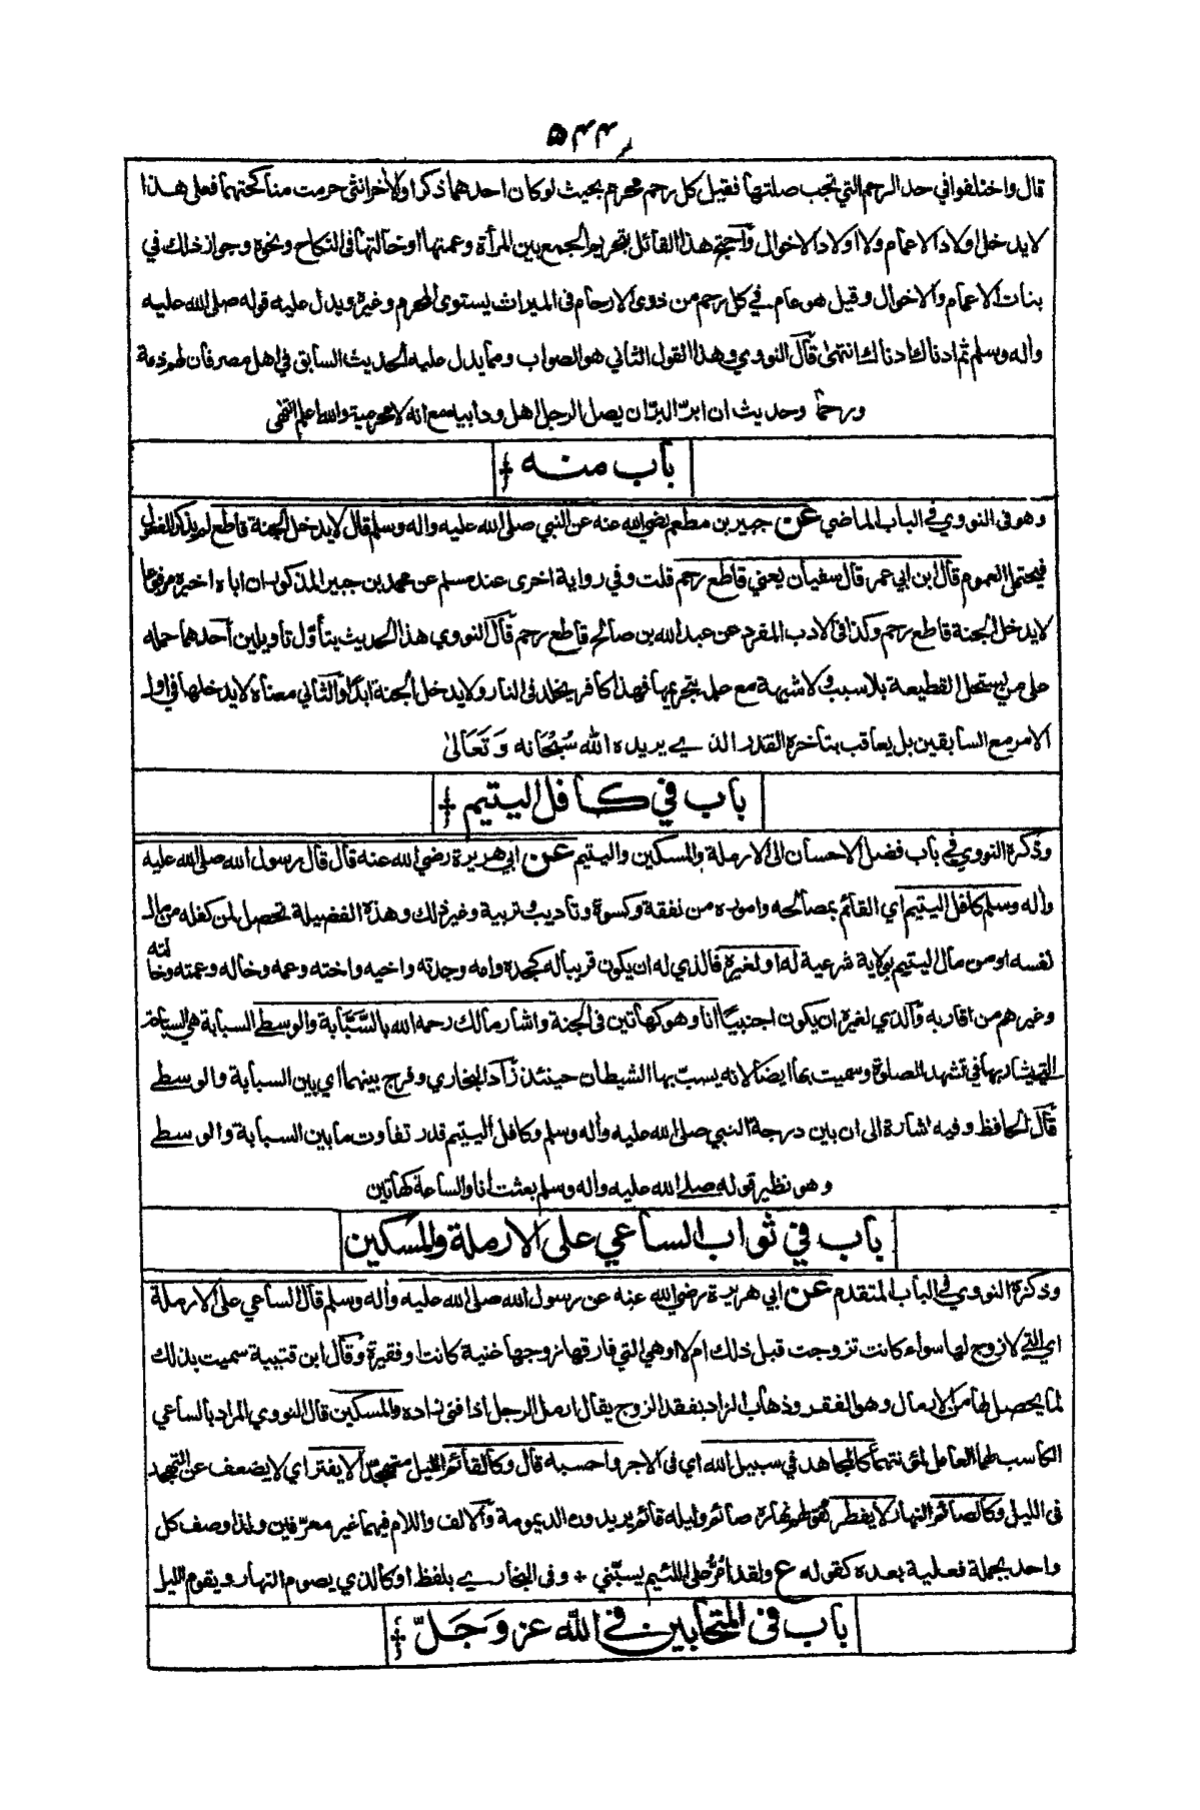 ۵۴۴
قال واختلفوا في حد الرحم التي تجب صلتها فقيل كل رحم محرم بحيث لو كان احدهما ذكرا والاخر انثى حرمت مناكحتهما فعلى هذا
لا يدخل اولاد الاعمام ولا اولاد الاخوال واحتج هذا القائل بتحريم الجمع بين المرأة وعمتها او خالتها في النكاح ونحوه وجواز ذلك في
بنات الاعمام والاخوال وقيل هو عام في كل رحم من ذوى الارحام فى الميراث يستوى المحرم وغيره ويدل عليه قوله صلى الله عليه
واله وسلم ثم ادناك ادناك انتهى قال النووي وهذا القول الثاني هو الصواب ومما يدل عليه الحديث السابق في اهل مصر فان لهم ذمة
ورحما وحديث ان ابرّ البرّ ان يصل الرجل اهل ود ابيه مع انه لا محرمية والله اعلم انتهى
باب منه
وهو فى النووي في الباب الماضي عن جبير بن مطعم رضي الله عنه عن النبي صلى الله عليه واله وسلم قال لا يدخل الجنة قاطع لم يذكر المفعول
فيحتمل العموم قال ابن ابي عمر قال سفيان يعني قاطع رحم قلت وفي رواية اخرى عند مسلم عن محمد بن جبير المذكور ان اباه اخبره مرفوعا
لا يدخل الجنة قاطع رحم وكذا فى الادب المفرد عن عبد الله بن صالح قاطع رحم قال النووي هذا الحديث يتأول تاويلين أحدهما حمله
على من يستحل القطيعة بلا سبب ولا شبهة مع علمه بتحريمها فهذا كافر يخلد فى النار ولا يدخل الجنة ابدًا والثاني معناه لا يدخلها في اول
الامر مع السابقين بل يعاقب بتاخره القدر الذي يريده الله سُبْحَانه وَتَعَالىٰ
باب في كافل اليتيم
وذكره النووي في باب فضل الاحسان الى الارملة والمسكين واليتيم عن ابي هريرة رضي الله عنه قال قال رسول الله صلى الله عليه
واله وسلم كافل اليتيم اي القائم بمصالحه واموره من نفقة وكسوة وتأديب وتربية وغير ذلك وهذه الفضيلة تحصل لمن كفله من مال
نفسه او من مال اليتيم بولاية شرعية له او لغيره فالذي له ان يكون قريبا له كجده وامه وجدته واخيه واخته وعمه وخاله وعمته وخالته
وغيرهم من اقاربه والذي لغيره ان يكون اجنبيًا انا وهو كهاتين فى الجنة واشار مالك رحمه الله بالسَّبَّابة والوسطى السبابة هي السباحة
التي يشار بها في تشهد الصلوة وسميت بها ايضا لانه يسبّ بها الشيطان حينئذ زاد البخاري وفرج بينهما اي بين السبابة والوسطى
قال الحافظ وفيه اشارة الى ان بين درجة النبي صلى الله عليه واله وسلم وكافل اليتيم قدر تفاوت ما بين السبابة والوسطى
وهو نظير قوله صلى الله عليه واله وسلم بعثت انا والساعة كهاتين
باب في ثواب الساعي على الارملة والمسكين
وذكره النووي في الباب المتقدم عن ابي هريرة رضي الله عنه عن رسول الله صلى الله عليه واله وسلم قال الساعي على الارملة
اي التي لا زوج لها سواء كانت تزوجت قبل ذلك ام لا او هي التي فارقها زوجها غنية كانت او فقيرة وقال ابن قتيبة سميت بذلك
لما يحصل لها من الارمال وهو الفقر وذهاب الزاد بفقد الزوج يقال ارمل الرجل اذا فنى زاده والمسكين قال النووي المراد بالساعي
الكاسب لهما العامل لمؤنتهما كالمجاهد في سبيل الله اي فى الاجر واحسبه قال وكالقائم الليل متهجدًا لا يفتر اي لا يضعف عن التهجد
فى الليل وكالصائم النهار لا يفطر كقولهم نهاره صائم وليله قائم يريدون الديمومة والالف واللام فيهما غير معرّفين ولذا وصف كل
واحد بجملة فعلية بعده كقوله ع ولقد امُرُّ على اللئيم يسبّني + وفى البخاري بلفظ او كالذي يصوم النهار ويقوم الليل
باب فى المتحابين في الله عز وَجَلّ